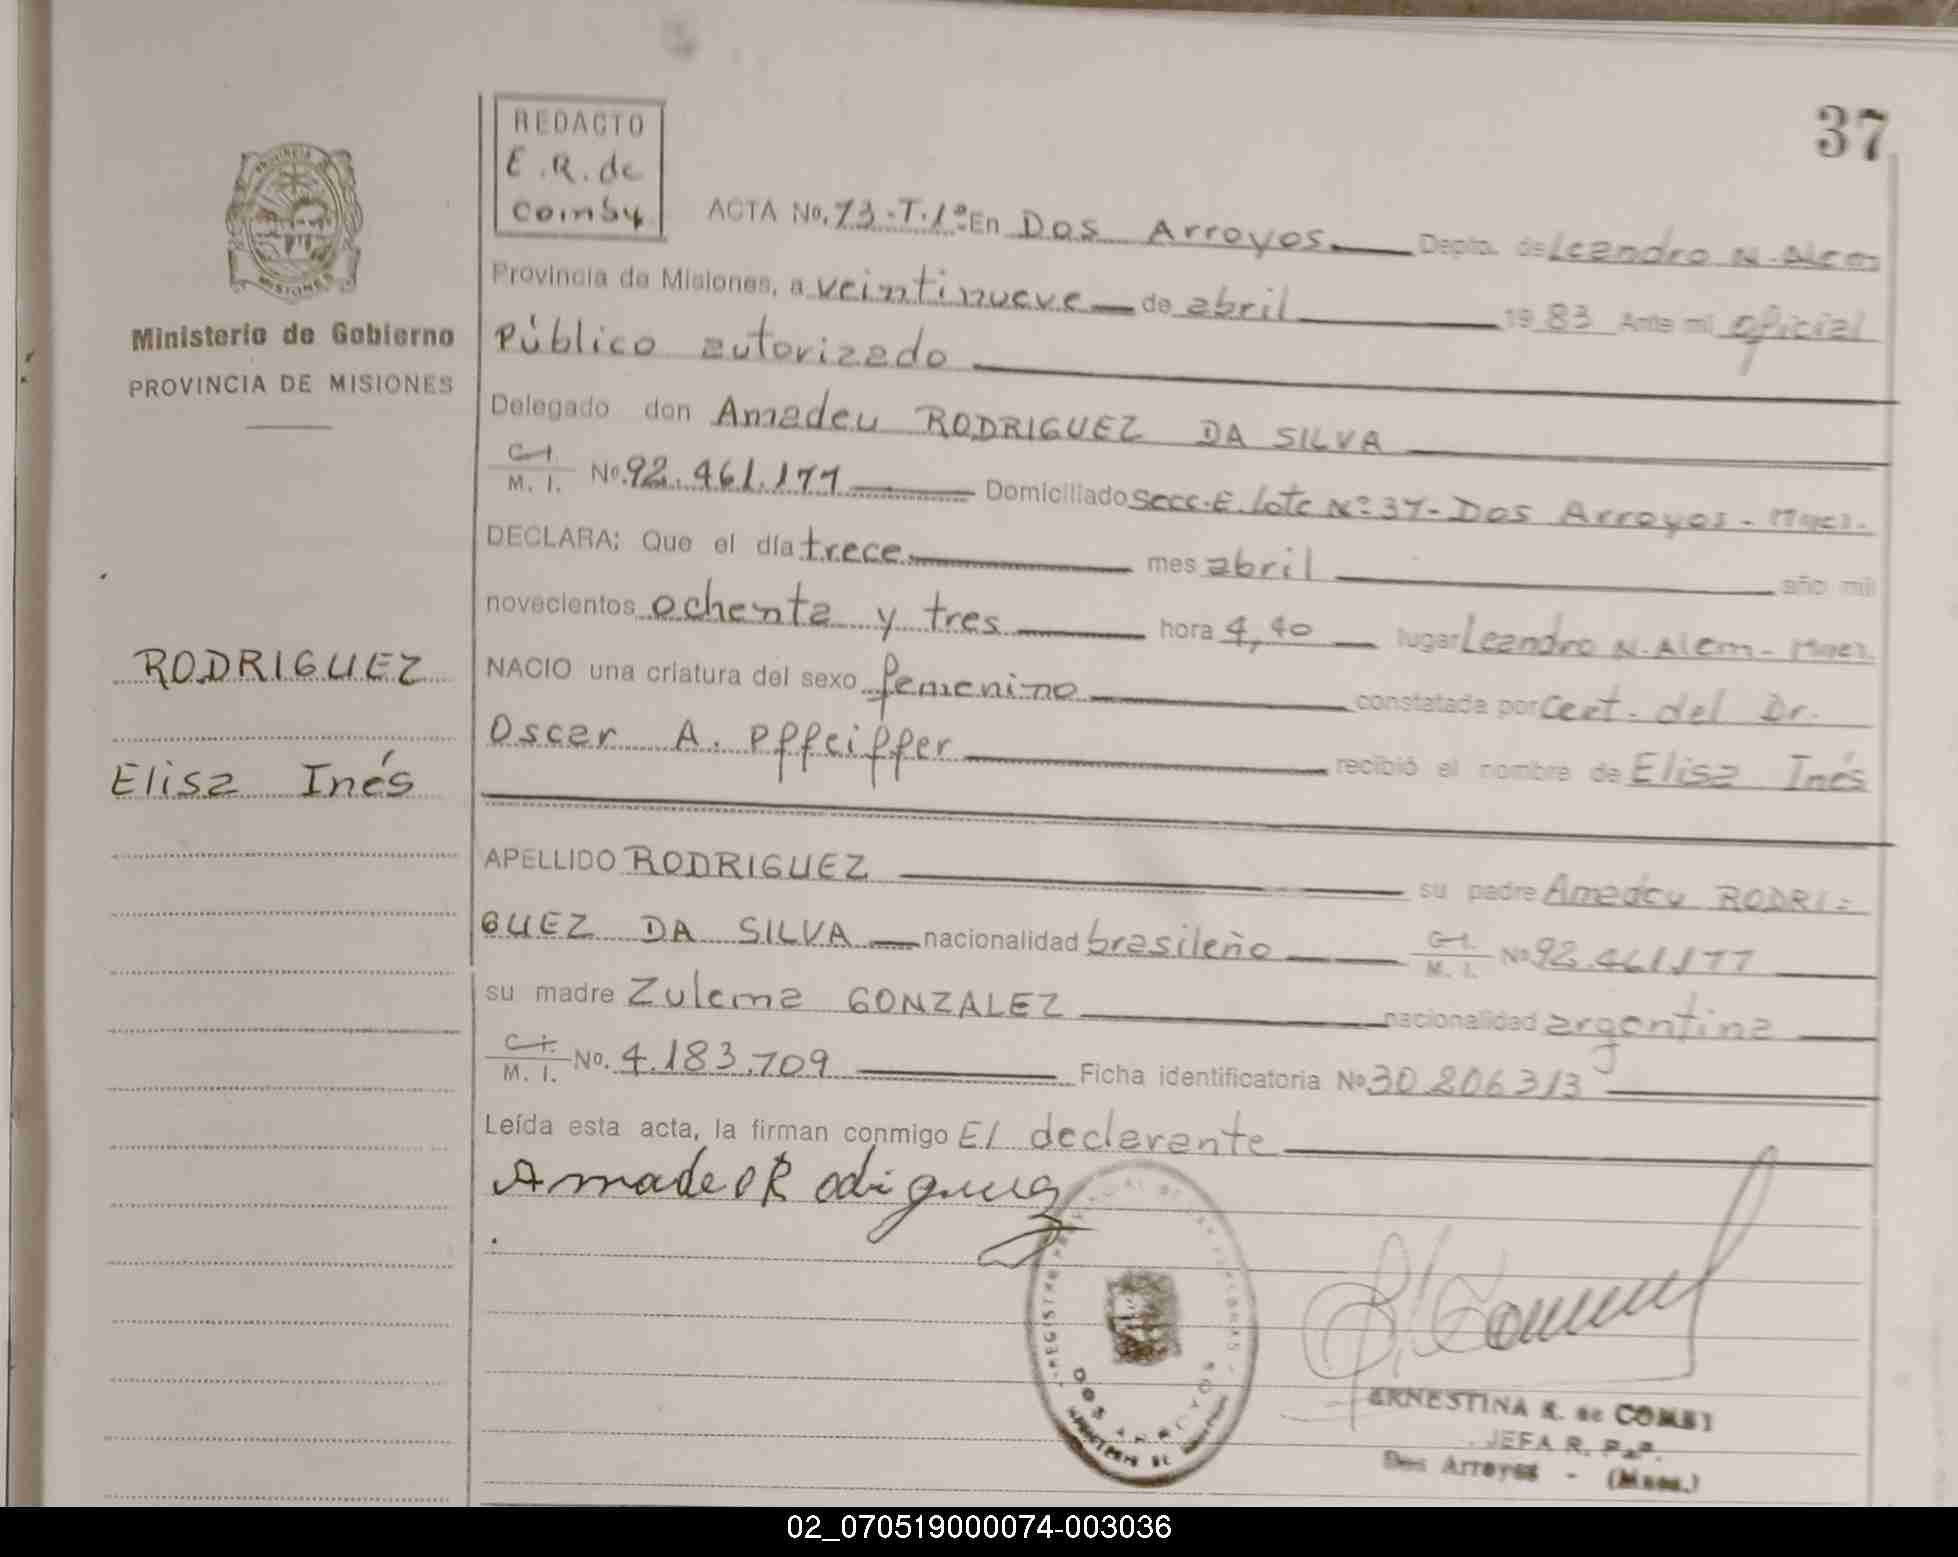 37
REDACTO
E.R. de
Comby
ACTA No. 73.T.1º En Dos Arroyos Depto. de Leandro N. Alem
Provincia de Misiones, a veintinueve de abril 1983 Ante mi oficial
Público autorizado
Delegado don Amadeu RODRIGUEZ DA SILVA
C.I. M. I. No. 92.461.177 Domiciliado Secc. E. lote Nº 37- Dos Arroyos - Mnes.
DECLARA: Que el día trece mes abril año mil
novecientos ochenta y tres hora 4,40 lugar Leandro N. Alem - Mnes.
NACIO una criatura del sexo femenino constatada por Cert. del Dr.
Oscar A. Pffeiffer recibió el nombre de Elisa Inés
APELLIDO RODRIGUEZ su padre Amadeu RODRI=
GUEZ DA SILVA nacionalidad brasileño C.I. M. I. No 92.461.177
su madre Zulema GONZALEZ nacionalidad argentina
C.I. M. I. No. 4.183.709 Ficha identificatoria No 30.206.313
Leída esta acta, la firman conmigo El declarante
Amadeo Rodriguez
PROVINCIA DE
MISIONES
Ministerio de Gobierno
PROVINCIA DE MISIONES
RODRIGUEZ
Elisa Inés
REGISTRO PROVINCIAL DE LAS PERSONAS
DOS ARROYOS
ERNESTINA R. de COMBY
JEFA R. P. P.
Dos Arroyos - (Mnes.)
02_070519000074-003036